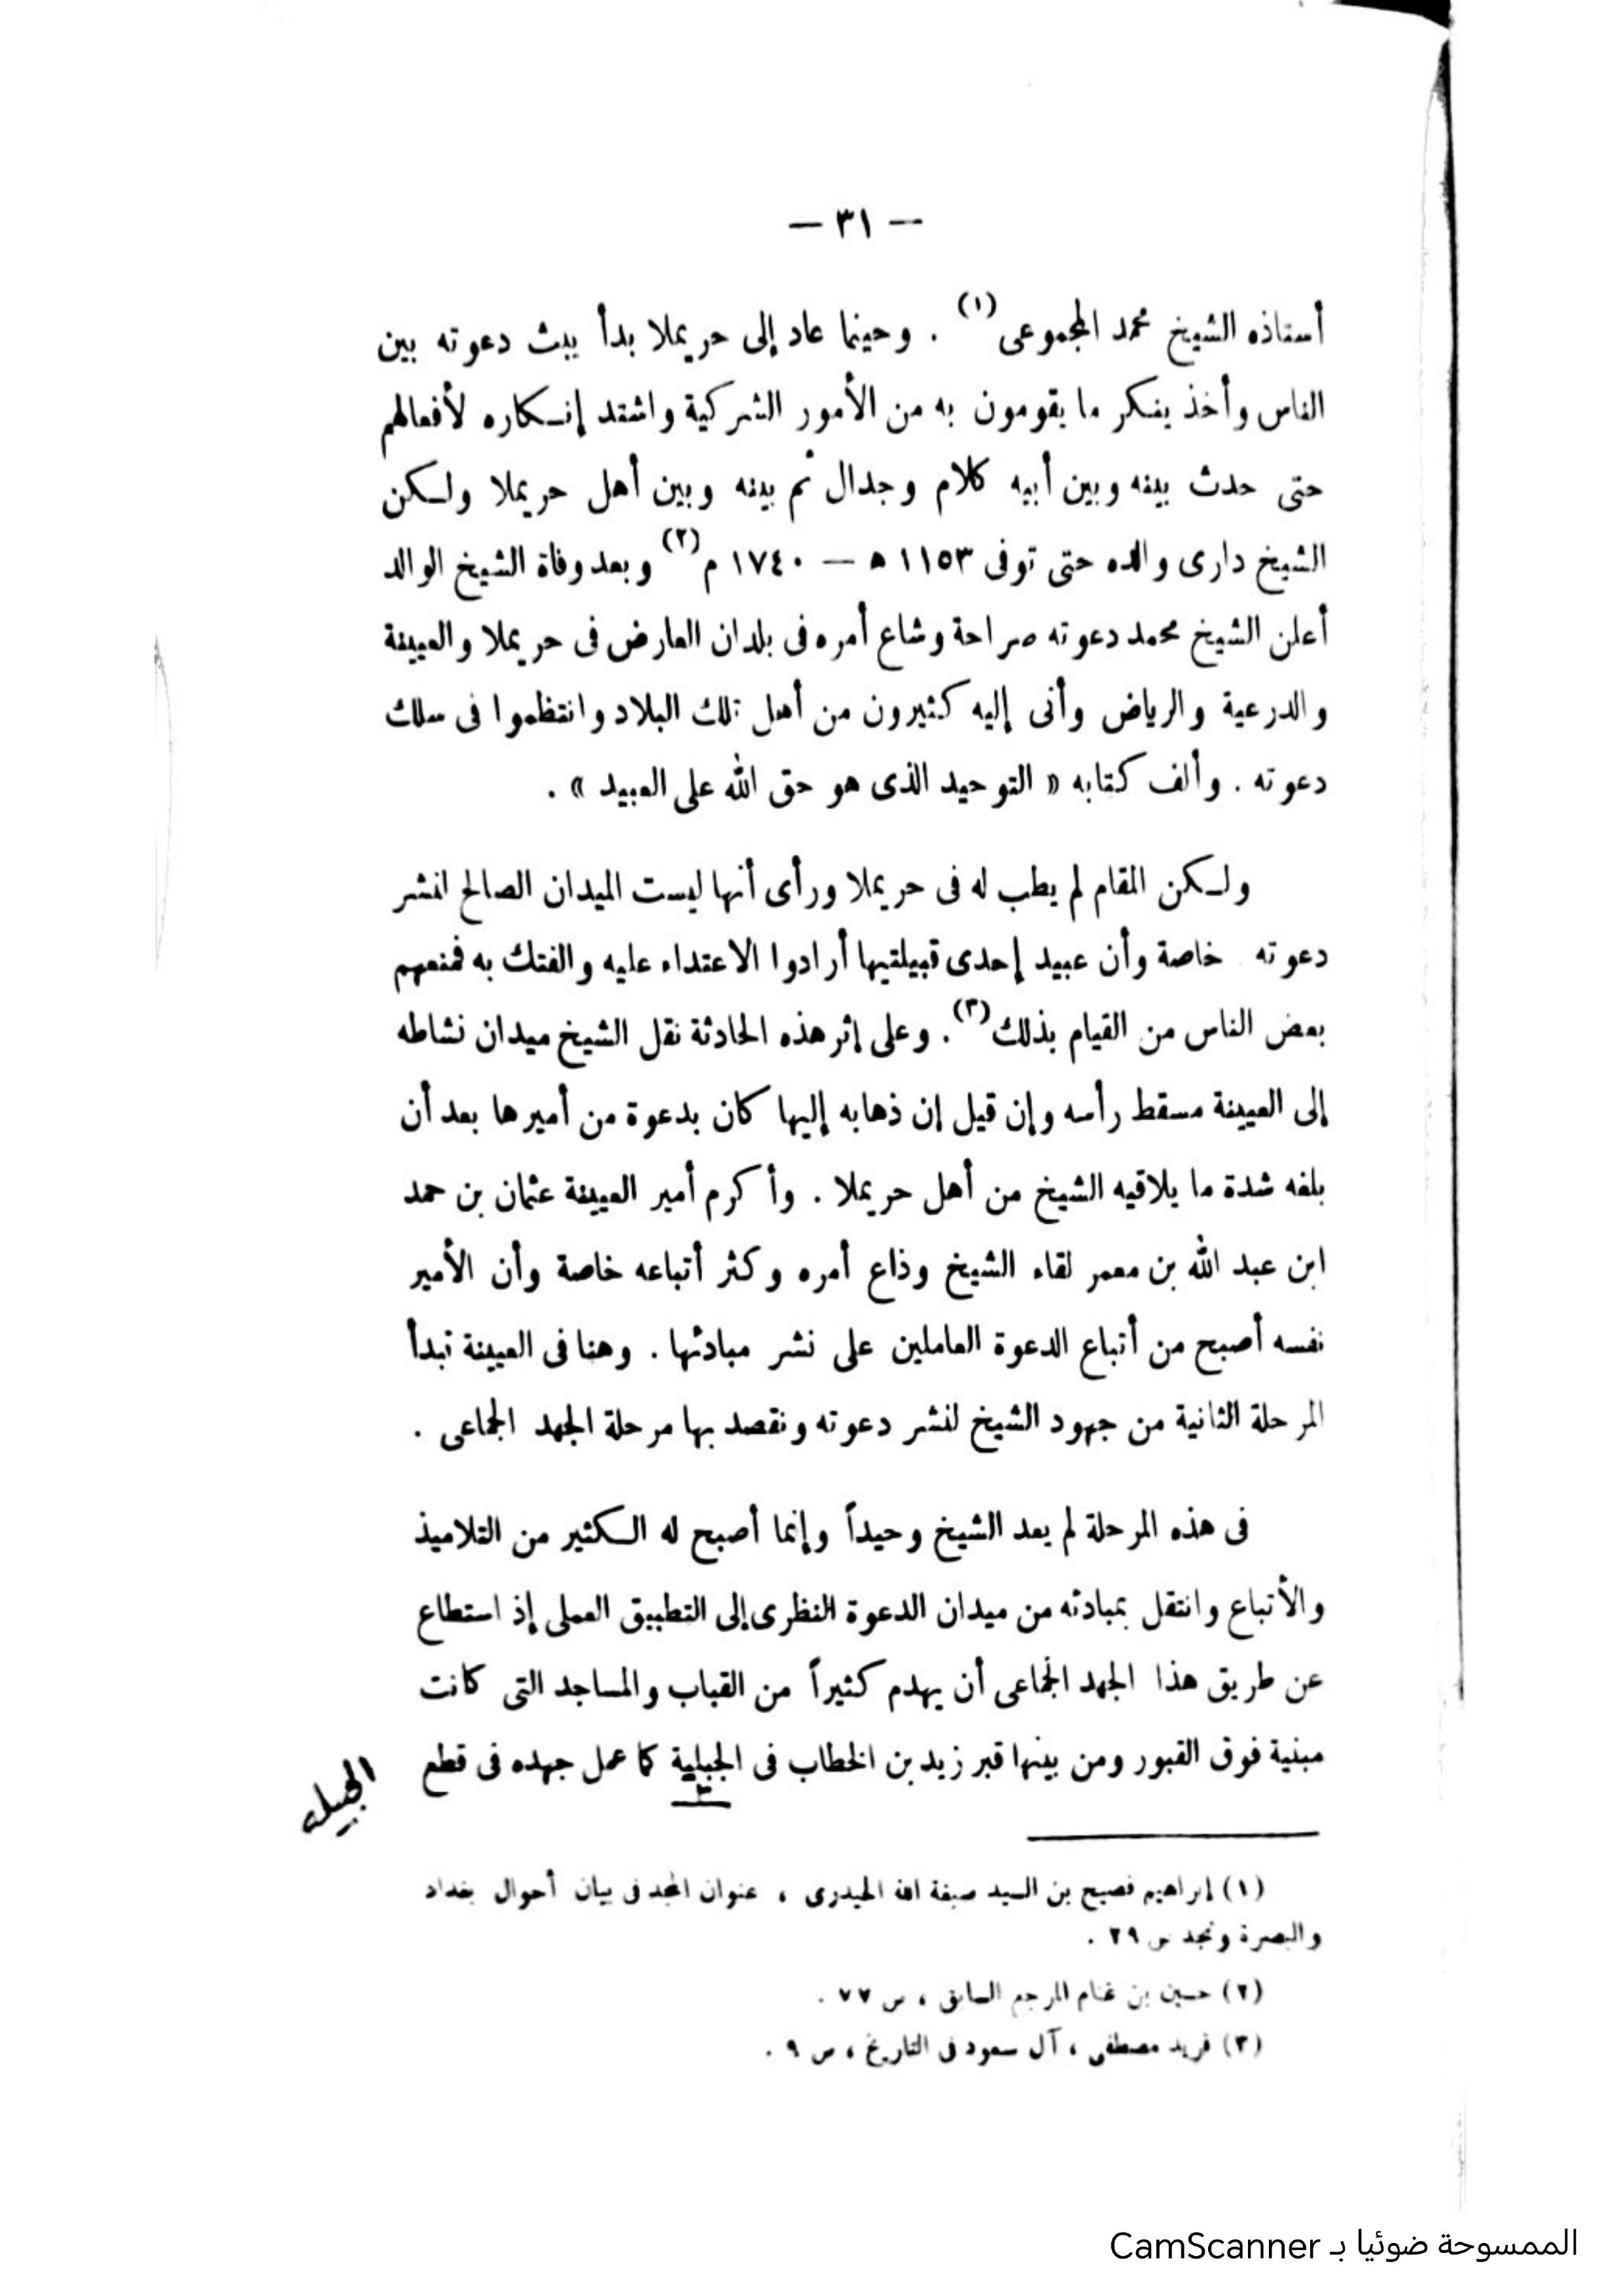 — ٣١ —
أستاذه الشيخ محمد المجموعى (١) . وحينما عاد إلى حريملا بدأ يبث دعوته بين
الناس وأخذ ينكر ما يقومون به من الأمور الشركية واشتد إنكاره لأفعالهم
حتى حدث بينه وبين أبيه كلام وجدال ثم بينه وبين أهل حريملا ولكن
الشيخ دارى والده حتى توفى ١١٥٣ ه — ١٧٤٠ م (٢) وبعد وفاة الشيخ الوالد
أعلن الشيخ محمد دعوته صراحة وشاع أمره فى بلدان العارض فى حريملا والعيينة
والدرعية والرياض وأتى إليه كثيرون من أهل تلك البلاد وانتظموا فى سلك
دعوته . وألف كتابه « التوحيد الذى هو حق الله على العبيد » .
ولكن المقام لم يطب له فى حريملا ورأى أنها ليست الميدان الصالح لنشر
دعوته خاصة وأن عبيد إحدى قبيلتيها أرادوا الاعتداء عليه والفتك به فمنعهم
بعض الناس من القيام بذلك (٣) . وعلى إثر هذه الحادثة نقل الشيخ ميدان نشاطه
إلى العيينة مسقط رأسه وإن قيل إن ذهابه إليها كان بدعوة من أميرها بعد أن
بلغه شدة ما يلاقيه الشيخ من أهل حريملا . وأكرم أمير العيينة عثمان بن حمد
ابن عبد الله بن معمر لقاء الشيخ وذاع أمره وكثر أتباعه خاصة وأن الأمير
نفسه أصبح من أتباع الدعوة العاملين على نشر مبادئها . وهنا فى العيينة تبدأ
المرحلة الثانية من جهود الشيخ لنشر دعوته ونقصد بها مرحلة الجهد الجماعى .
فى هذه المرحلة لم يعد الشيخ وحيداً وإنما أصبح له الكثير من التلاميذ
والأتباع وانتقل بمبادئه من ميدان الدعوة النظرى إلى التطبيق العملى إذ استطاع
عن طريق هذا الجهد الجماعى أن يهدم كثيراً من القباب والمساجد التى كانت
مبنية فوق القبور ومن بينها قبر زيد بن الخطاب فى الجبلية كما عمل جهده فى قطع
الجبيلة
(١) إبراهيم فصيح بن السيد صبغة الله الحيدرى ، عنوان المجد فى بيان أحوال بغداد
والبصرة ونجد ص ٢٩ .
(٢) حسين بن غنام المرجع السابق ، ص ٧٧ .
(٣) فريد مصطفى ، آل سعود فى التاريخ ، ص ٩ .
الممسوحة ضوئيا بـ CamScanner